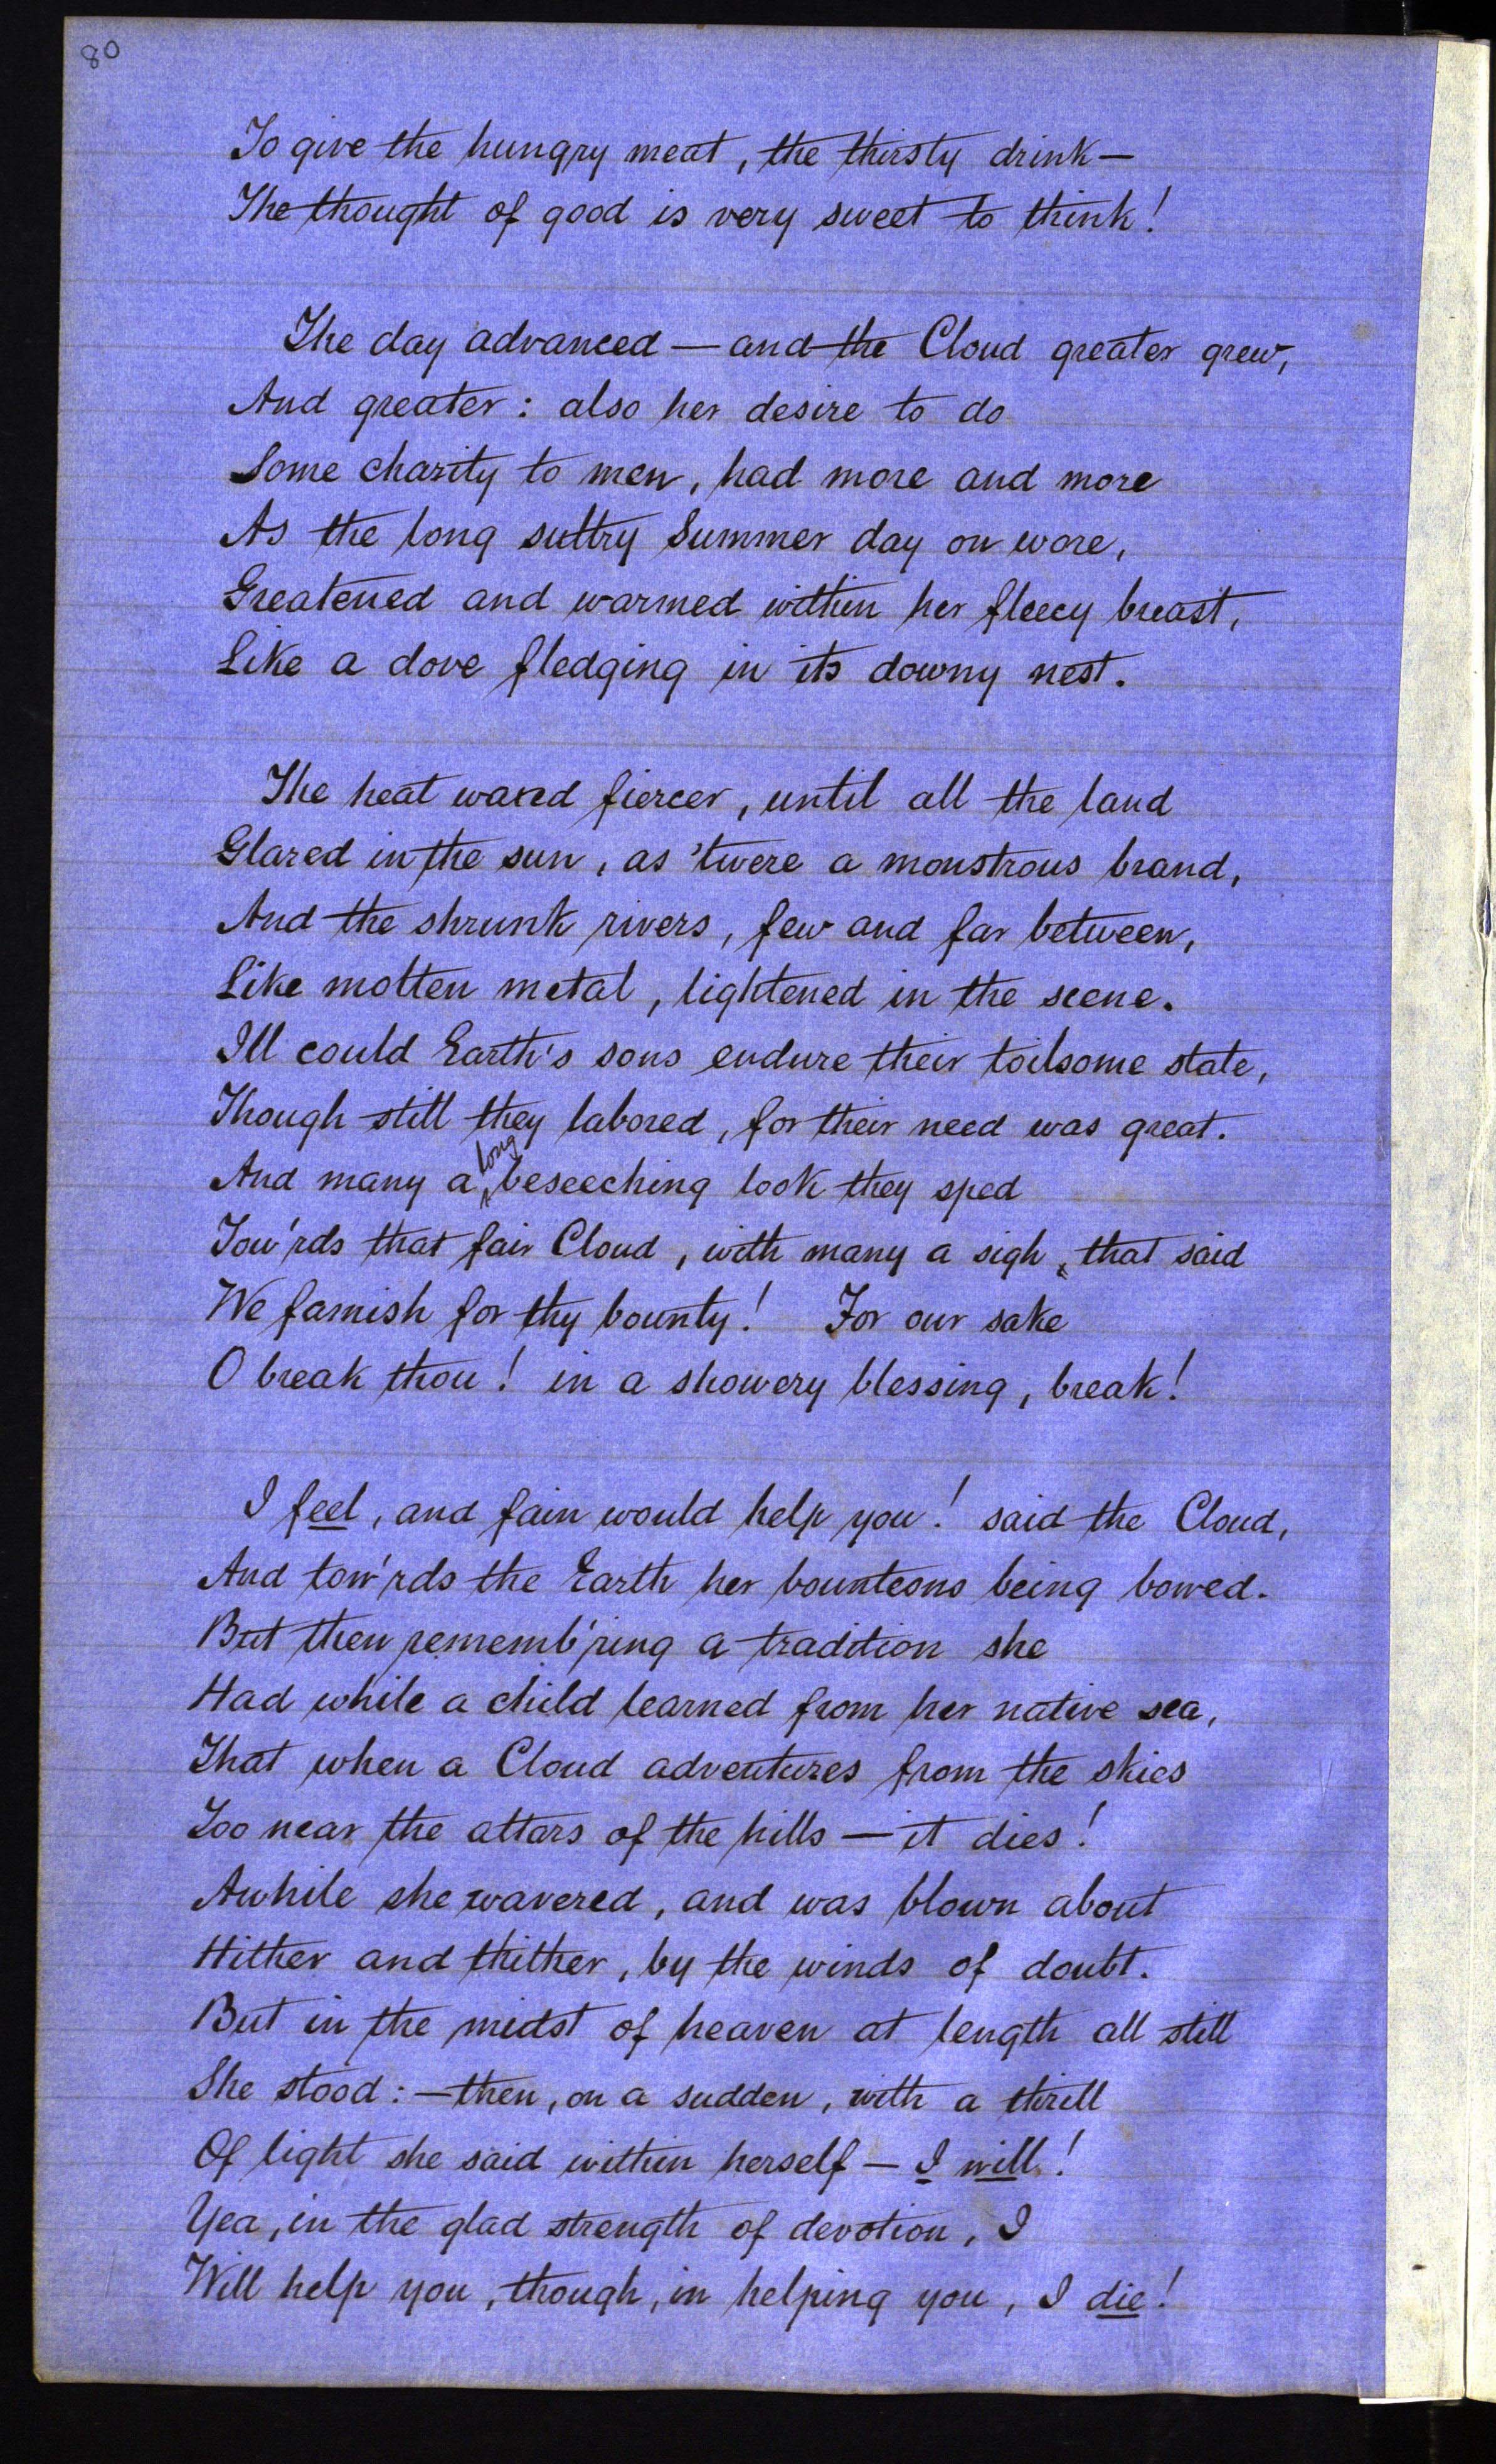 80
To give the hungry meat, the thirsty drink—
The thought of good is very sweet to think!
The day advanced — and the Cloud greater grew,
And greater: also her desire to do
Some charity to men, had more and more
As the long sultry Summer day on wore,
Greatened and warmed within her fleecy breast,
Like a dove fledging in its downy nest.
The heat waxed fiercer, until all the land
Glared in the sun, as 'twere a monstrous brand,
And the shrunk rivers, few and far between,
Like molten metal, lightened in the scene.
Ill could Earth's sons endure their toilsome state,
Though still they labored, for their need was great.
And many a long beseeching look they sped
Tow'rds that fair Cloud, with many a sigh, that said
We famish for thy bounty! For our sake
O break thou! in a showery blessing, break!
I feel, and fain would help you! said the Cloud,
And tow'rds the Earth her bounteous being bowed.
But then rememb'ring a tradition she
Had while a child learned from her native sea,
That when a Cloud adventures from the skies
Too near the altars of the hills — it dies!
Awhile she wavered, and was blown about
Hither and thither, by the winds of doubt.
But in the midst of heaven at length all still
She stood: — then, on a sudden, with a thrill
Of light she said within herself — I will!
Yea, in the glad strength of devotion, I
Will help you, though, in helping you, I die!